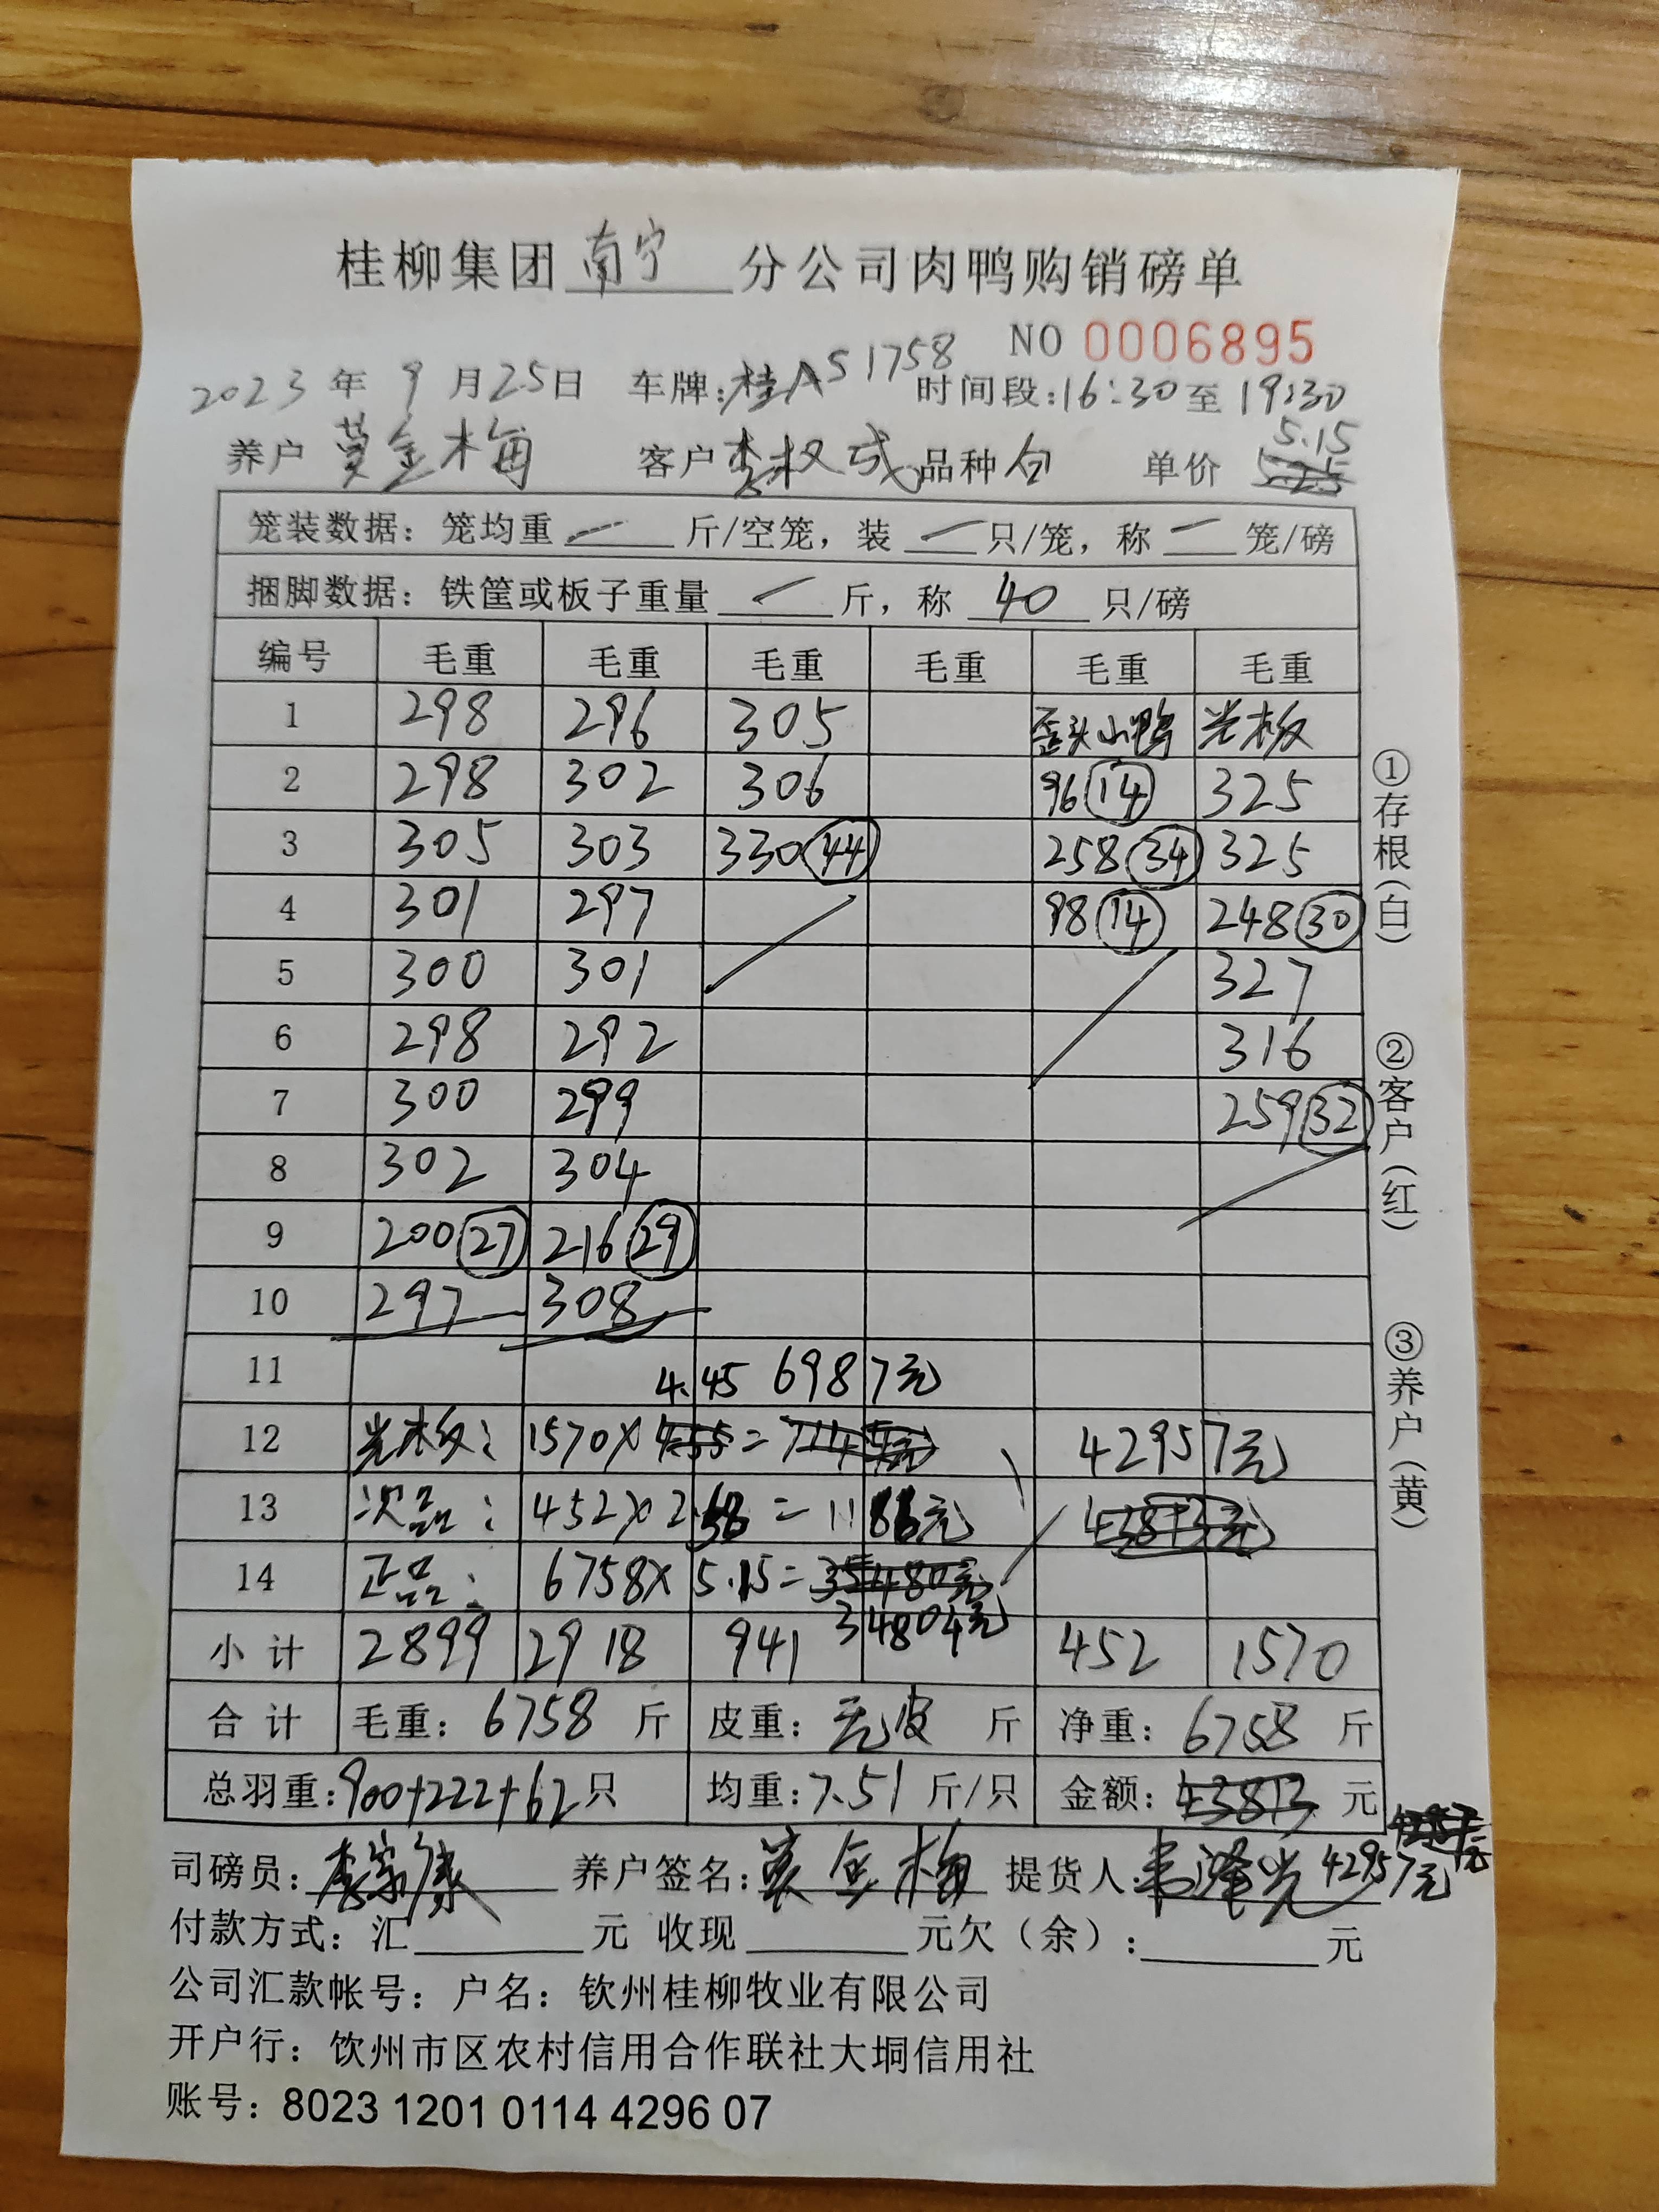 桂柳集团 南宁 分公司肉鸭购销磅单
NO 0006895
2023 年 9 月 25 日 车牌:桂AS1758 时间段:16:30 至 19:30
5.15
养户 黄金梅 客户 李权成 品种 白 单价 5.25
笼装数据: 笼均重 — 斤/空笼, 装 — 只/笼, 称 — 笼/磅
捆脚数据: 铁筐或板子重量 — 斤, 称 40 只/磅
编号 毛重 毛重 毛重 毛重 毛重 毛重
1 298 296 305 歪头小鸭 光板
2 298 302 306 96 14 325
3 305 303 330 44 258 34 325
4 301 297 98 14 248 30
5 300 301 327
6 298 292 316
7 300 299 259 32
8 302 304
9 200 27 216 29
10 297 308
11 4.45 6987元
12 光板: 1570× 4.55 = 7144元 42957元
13 次品: 452× = 元 43813元
14 正品: 6758× 5.15= 35480元
34804元
小计 2899 2918 941 452 1570
合计 毛重: 6758 斤 皮重: 无皮 斤 净重: 6758 斤
总羽重:900+222+62只 均重:7.51 斤/只 金额: 43813 元
42957元
司磅员: 李宗康 养户签名: 黄金梅 提货人: 韦泽光
付款方式: 汇 元 收现 元欠(余): 元
公司汇款帐号: 户名: 钦州桂柳牧业有限公司
开户行: 饮州市区农村信用合作联社大垌信用社
账号: 8023 1201 0114 4296 07
①存根(白)
②客户(红)
③养户(黄)